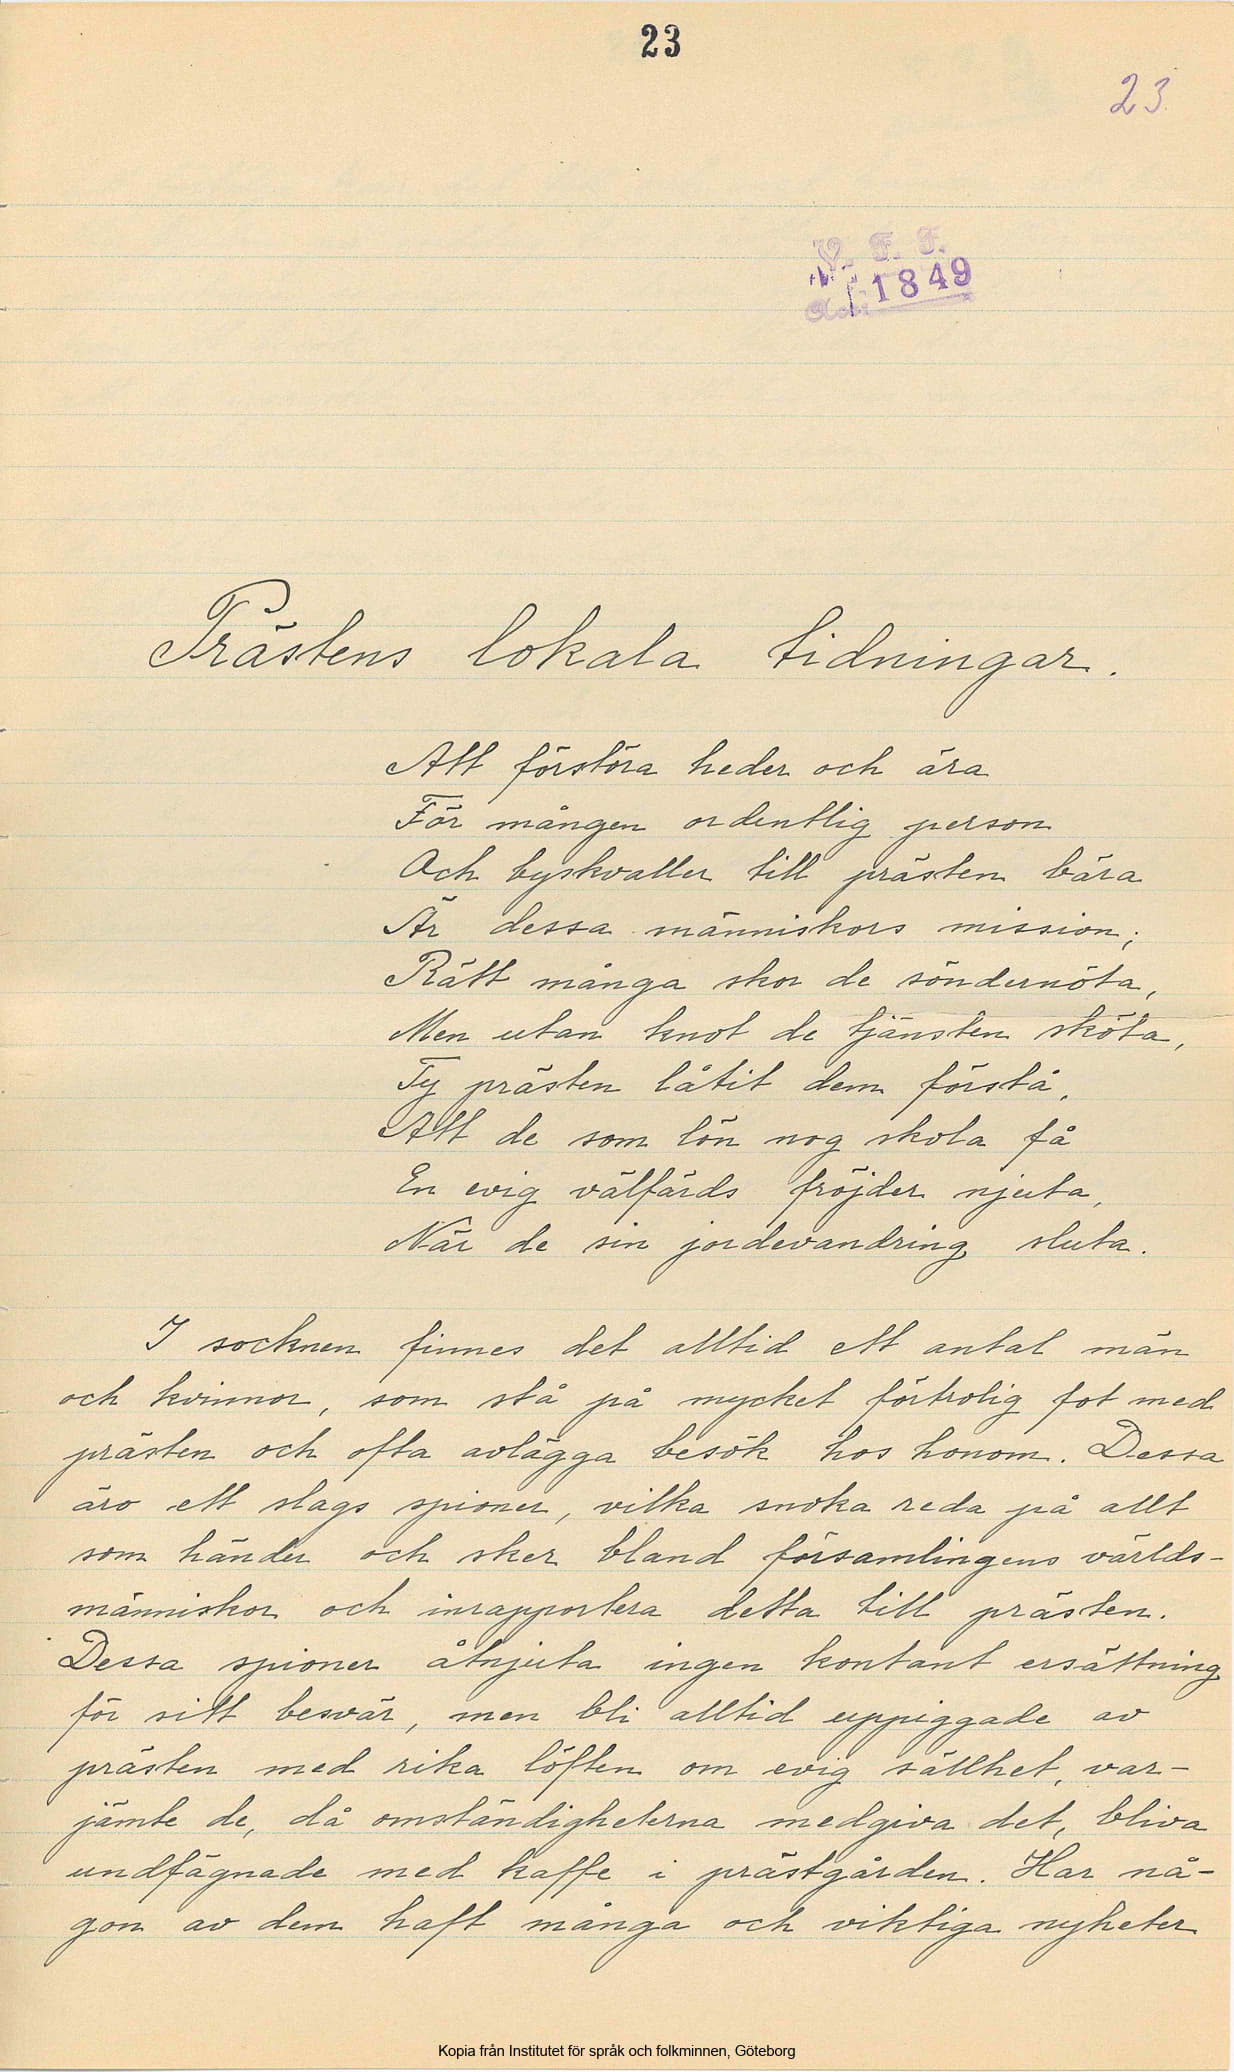 23
23.
V. F. F.
1849
Prästens lokala tidningar.
Att förstöra heder och ära
För mången ordentlig person
Och byskvaller till prästen bära
Är dessa människors mission;
Rätt många skor de söndernöta,
Men utan knot de tjänsten sköta,
Ty prästen låtit dem förstå,
Att de som lön nog skola få
En evig välfärds fröjder njuta,
När de sin jordevandring sluta.
I socknen finnes det alltid ett antal män
och kvinnor, som stå på mycket förtrolig fot med
prästen och ofta avlägga besök hos honom. Dessa
äro ett slags spioner, vilka snoka reda på allt
som händer och sker bland församlingens världs-
människor och inrapportera detta till prästen.
Dessa spioner åtnjuta ingen kontant ersättning
för sitt besvär, men bli alltid uppiggade av
prästen med rika löften om evig sällhet, var-
jämte de, då omständigheterna medgiva det, bliva
undfägnade med kaffe i prästgården. Har nå-
gon av dem haft många och viktiga nyheter
Kopia från Institutet för språk och folkminnen, Göteborg